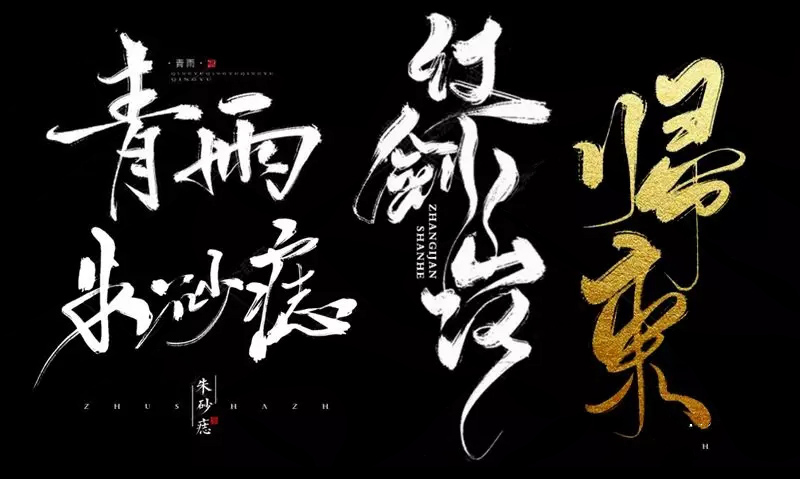 · 青雨 ·
QINGYUQINGYUQINGYU
QINGYU
青雨
朱砂痣
朱砂痣
Z H U S H A Z H
仗剑山河
ZHANGIJAN
SHANHE
帰来
H